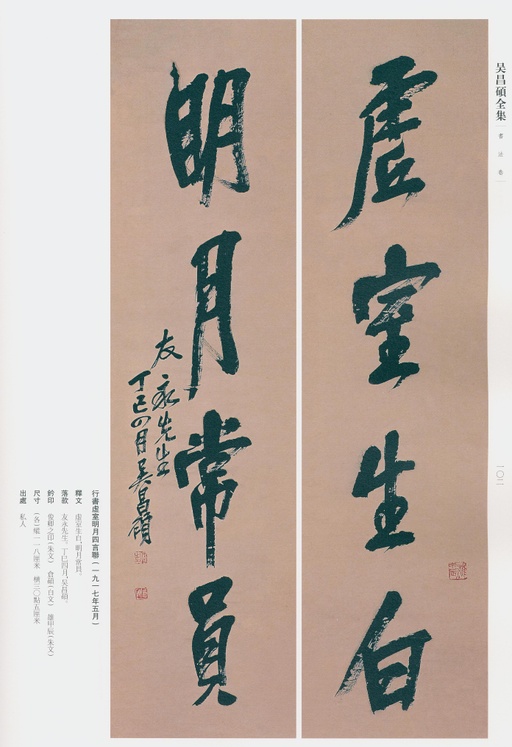 吴昌碩全集
書法卷
一〇二
虛室生白
明月常員
友永先生
丁巳四月吳昌碩
行書虛室明月四言聯(一九一七年五月)
釋文 虛室生白,明月常員。
落款 友永先生。丁巳四月,吳昌碩。
鈐印 俊卿之印(朱文) 倉碩(白文) 雄甲辰(朱文)
尺寸 (各)縱一一八厘米 橫三〇點五厘米
出處 私人